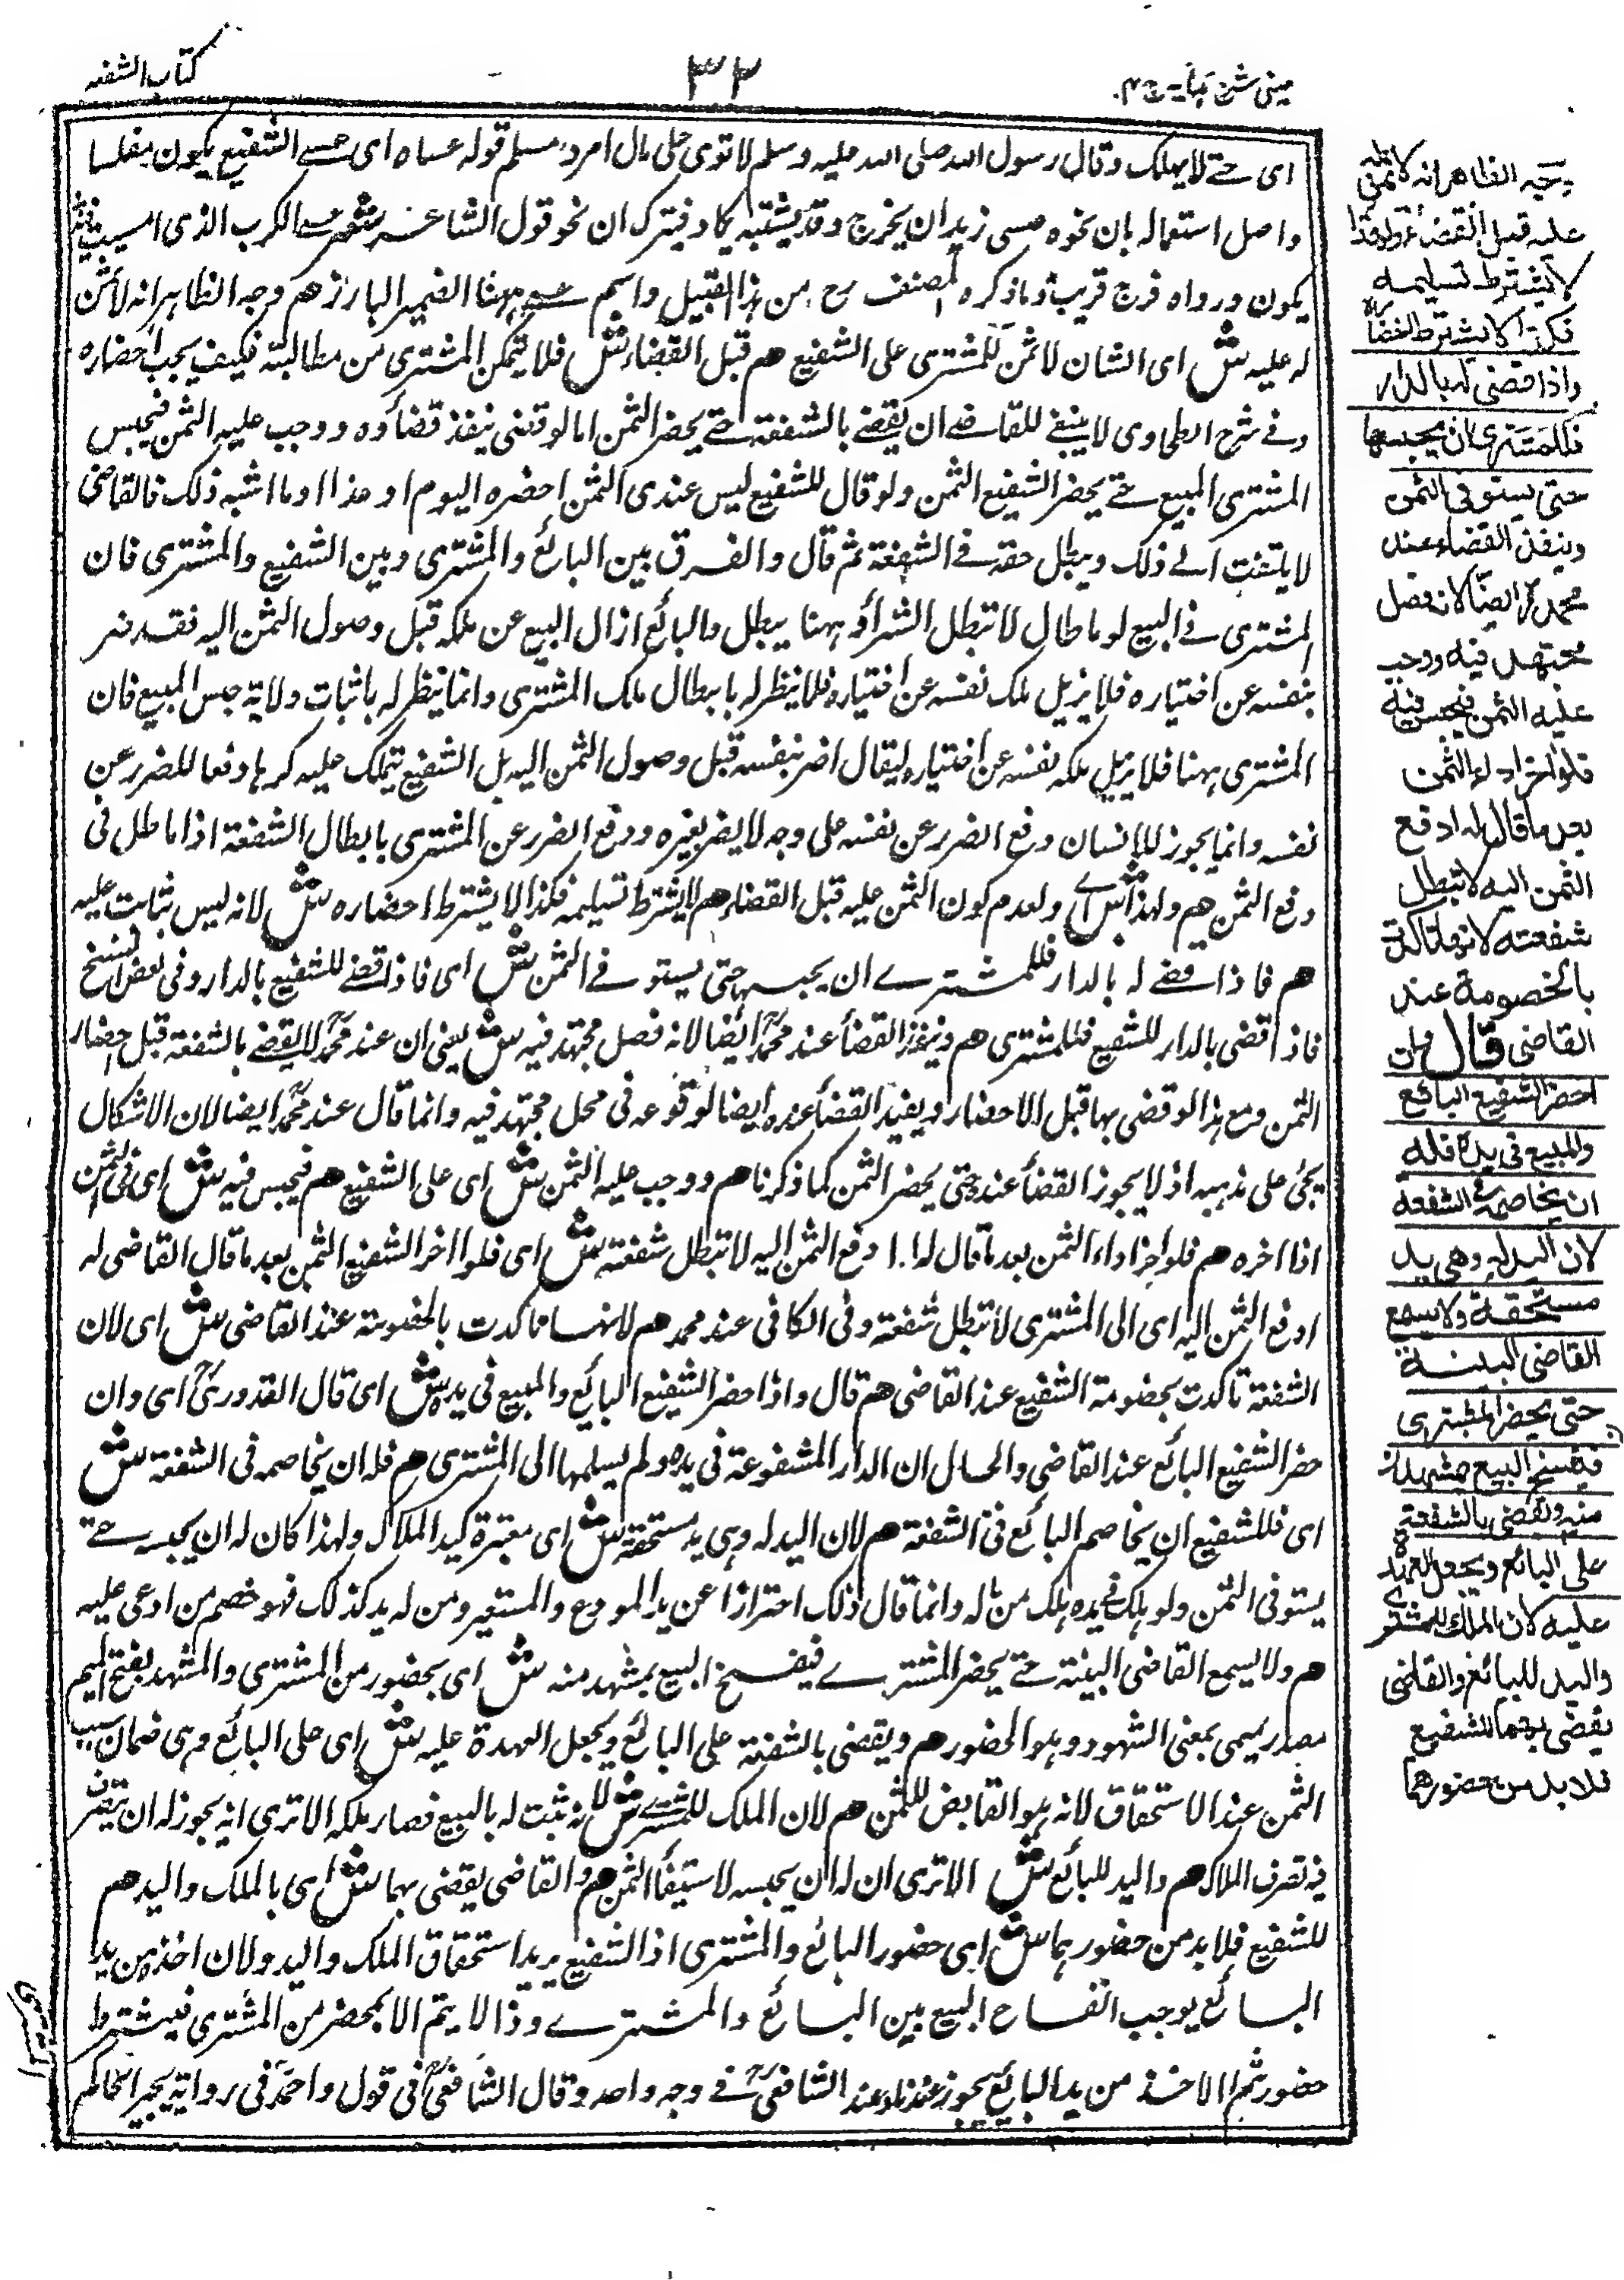 عینی شرح ہدایہ ج ۴
۳۳
كتاب الشفعة
ای حتے لا یہلک وقال رسول اللہ صلی اللہ علیہ وسلم لا توی علی مال امرء مسلم قولہ عساہ ای عسے الشفیع یکون مفلسا
واصل استعمالہ بان نحوہ عسی زید ان یخرج وقد یشتبہ بکاد فیترک ان نحو قول الشاعر شعر عسے الکرب الذی امسیت فیہ
یکون وراءہ فرج قریب وما ذکرہ المصنف رح من ہذا القبیل واسم عسے ہہنا الضمیر البارز ھم وجہ الظاہر انہ لا ثمن
لہ علیہ ش ای الشان لا ثمن للمشتری علی الشفیع ھم قبل القضاء ش فلا یتمکن المشتری من مطالبتہ فکیف یجب احضارہ
وفے شرح الطحاوی لا ینبغے للقاضے ان یقضے بالشفعة حتے یحضر الثمن اما لو قضی ینفذ قضاؤہ ووجب علیہ الثمن فیحبس
المشتری المبیع حتے یحضر الشفیع الثمن ولو قال للشفیع لیس عندی الثمن احضرہ الیوم او غدا او ما اشبہ ذلک فالقاضی
لا یلتفت الے ذلک ویبطل حقہ فے الشفعة ثم قال والفرق بین البائع والمشتری وبین الشفیع والمشتری فان
المشتری فے البیع لو ماطال لا تبطل الشراء وہہنا یبطل والبائع ازال المبیع عن ملکہ قبل وصول الثمن الیہ فقد ضر
بنفسہ عن اختیارہ فلا یزیل ملک نفسہ عن اختیارہ فلا ینظر لہ بابطال ملک المشتری وانما ینظر لہ باثبات ولایة حبس المبیع فان
المشتری ہہنا فلا یزیل ملکہ نفسہ عن اختیارہ لیقال اضر بنفسہ قبل وصول الثمن الیہ بل الشفیع یتملک علیہ کرہا دفعا للضرر عن
نفسہ وانما یجوز للانسان دفع الضرر عن نفسہ علی وجہ لا یضر بغیرہ ودفع الضرر عن المشتری بابطال الشفعة اذا ماطل فی
دفع الثمن ھم ولہذا ش اے ولعدم کون الثمن علیہ قبل القضاء ھم لا یشترط تسلیمہ فکذا لا یشترط احضارہ ش لانہ لیس بثابت علیہ
ھم فاذا قضے لہ بالدار فللمشترے ان یحبسہا حتی یستوفے الثمن ش ای فاذا قضے للشفیع بالدار وفی بعض النسخ
فاذا قضی بالدار للشفیع فللمشتری ھم وینفذ القضاء عند محمدؒ ایضا لانہ فصل مجتہد فیہ ش یعنی ان عند محمدؒ لا یقضے بالشفعة قبل احضار
الثمن ومع ہذا لو قضی بہا قبل الاحضار ویفید القضاء عندہ ایضا لوقوعہ فی محل مجتہد فیہ وانما قال عند محمدؒ ایضا لان الاشکال
یجئ علی مذہبہ اذ لا یجوز القضاء عندہ حتی یحضر الثمن کما ذکرنا ھم ووجب علیہ الثمن ش ای علی الشفیع ھم فیحبس فیہ ش ای فی الثمن
اذا اخرہ ھم فلو اخر اداء الثمن بعد ما قال لہ ادفع الثمن الیہ لا تبطل شفعتہ ش ای فلو اخر الشفیع الثمن بعد ما قال القاضی لہ
ادفع الثمن الیہ ای الی المشتری لا تبطل شفعتہ وفی الکافی عند محمد ھم لانہا تاکدت بالخصومة عند القاضی ش ای لان
الشفعة تاکدت بخصومة الشفیع عند القاضی ھم قال واذا حضر الشفیع البائع والمبیع فی یدہ ش ای قال القدوریؒ ای وان
حضر الشفیع البائع عند القاضی والحال ان الدار المشفوعة فی یدہ ولم یسلمہا الی المشتری ھم فلہ ان یخاصمہ فی الشفعة ش
ای فللشفیع ان یخاصم البائع فی الشفعة ھم لان الید لہ وہی ید مستحقة ش ای معتبرة کید الملاک ولہذا کان لہ ان یحبسہ حتے
یستوفی الثمن ولو ہلک فی یدہ ہلک من مالہ وانما قال ذلک احترازا عن ید المودع والمستعیر ومن لہ ید کذلک فہو خصم من ادعی علیہ
ھم ولا یسمع القاضی البینة حتے یحضر المشترے فیفسخ البیع بمشہد منہ ش ای بحضور من المشتری والمشہد بفتح المیم
مصدر میمی بمعنی الشہود وہو الحضور ھم ویقضی بالشفعة علی البائع ویجعل العہدة علیہ ش ای علی البائع وہی ضمان سبب
الثمن عند الاستحقاق لانہ ہو القابض للثمن ھم لان الملک للمشترے ش لانہ ثبت لہ بالبیع فصار ملکہ الا تری انہ یجوز لہ ان یتصرف
فیہ تصرف الملاک ھم والید للبائع ش الا تری ان لہ ان یحبسہ لاستیفاء الثمن ھم والقاضی یقضی بہما ش ای بالملک والید ھم
للشفیع فلا بد من حضورہما ش ای حضور البائع والمشتری اذ الشفیع یرید استحقاق الملک والید ولان اخذہ من ید
البائع یوجب انفساخ البیع بین البائع والمشترے وذا لا یتم الا بمحضر من المشتری فیشترط
حضورہ ثم الاخذ من ید البائع یجوز عندنا وعند الشافعیؒ فے وجہ واحد وقال الشافعیؒ فی قول واحمدؒ فی روایة یجبر الحاکم
وجہ الظاهر انه لا ثمن له
علیه قبل القضاء ولهذا
لا یشترط تسلیمه
فکذا لا یشترط احضاره
واذا قضی له بالدار
فللمشتری ان یحبسها
حتی یستوفی الثمن
وینفذ القضاء عند
محمدؒ ایضا لانه فصل
مجتهد فیه ووجب
علیه الثمن فیحبس فیه
فلو اخر اداء الثمن
بعد ما قال له ادفع
الثمن الیه لا تبطل
شفعته لانها تاکدت
بالخصومة عند
القاضی قال وان
احضر الشفیع البائع
والمبیع فی یده فله
ان یخاصمه فی الشفعة
لان الید له وهی ید
مستحقة ولا یسمع
القاضی البینة
حتی یحضر المشتری
فیفسخ البیع بمشهد
منه ویقضی بالشفعة
علی البائع ویجعل العهدة
علیه لان الملك للمشتری
والید للبائع والقاضی
یقضی بهما للشفیع
فلا بد من حضورهما